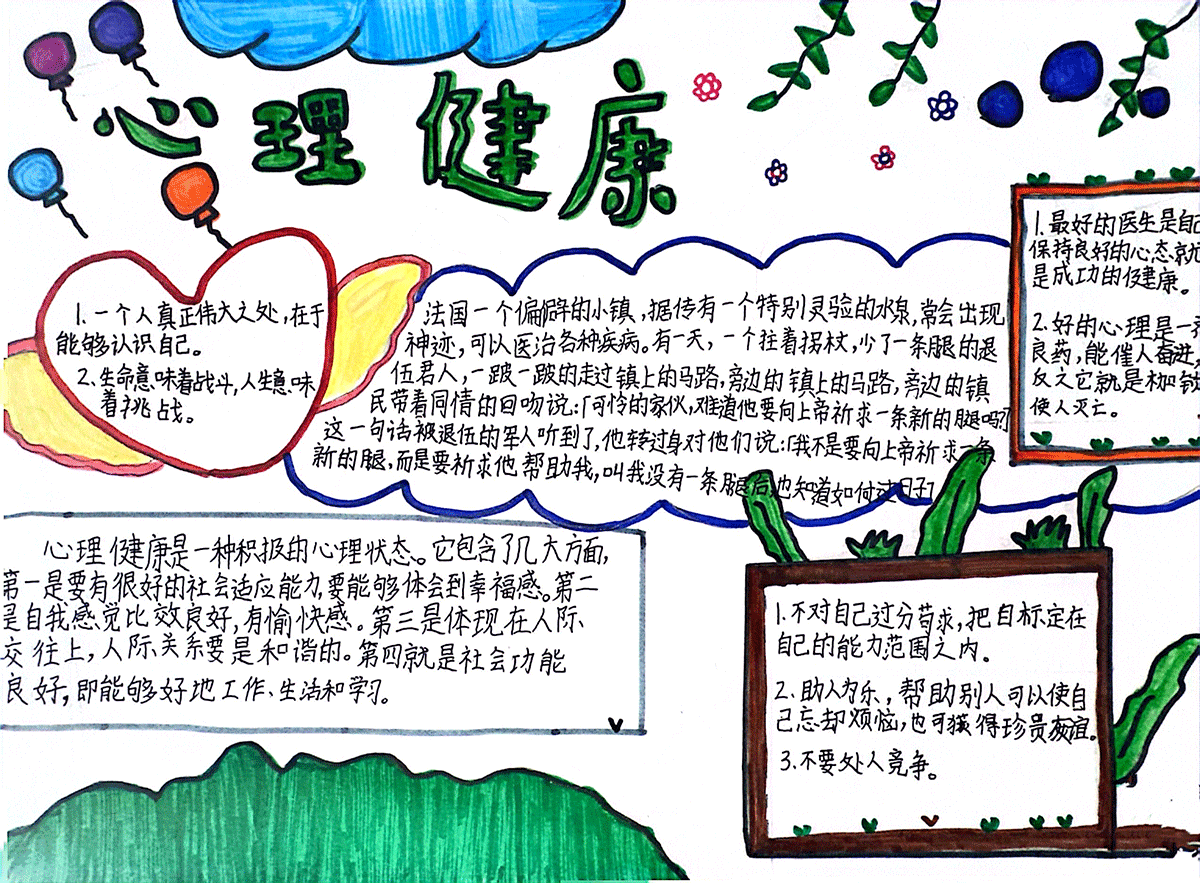 心理健康
1.一个人真正伟大之处,在于
能够认识自己。
2.生命意味着战斗,人生意味
着挑战。
法国一个偏僻的小镇,据传有一个特别灵验的水泉,常会出现
神迹,可以医治各种疾病。有一天,一个拄着拐杖,少了一条腿的退
伍君人,一跛一跛的走过镇上的马路,旁边的镇上的马路,旁边的镇
民带着同情的回吻说:「可怜的家伙,难道他要向上帝祈求一条新的腿吗?」
这一句话被退伍的军人听到了,他转过身对他们说:「我不是要向上帝祈求一条
新的腿,而是要祈求他帮助我,叫我没有一条腿后,也知道如何过日子」
1.最好的医生是自己
保持良好的心态就
是成功的健康。
2.好的心理是一
良药,能催人奋进
反之它就是枷锁
使人灭亡。
心理健康是一种积极的心理状态。它包含了几大方面,
第一是要有很好的社会适应能力,要能够体会到幸福感。第二
是自我感觉比效良好,有愉快感。第三是体现在人际
交往上,人际关系要是和谐的。第四就是社会功能
良好,即能够好地工作、生活和学习。
1.不对自己过分苛求,把目标定在
自己的能力范围之内。
2.助人为乐,帮助别人可以使自
己忘却烦恼,也可獲得珍贵友谊。
3.不要处人竞争。